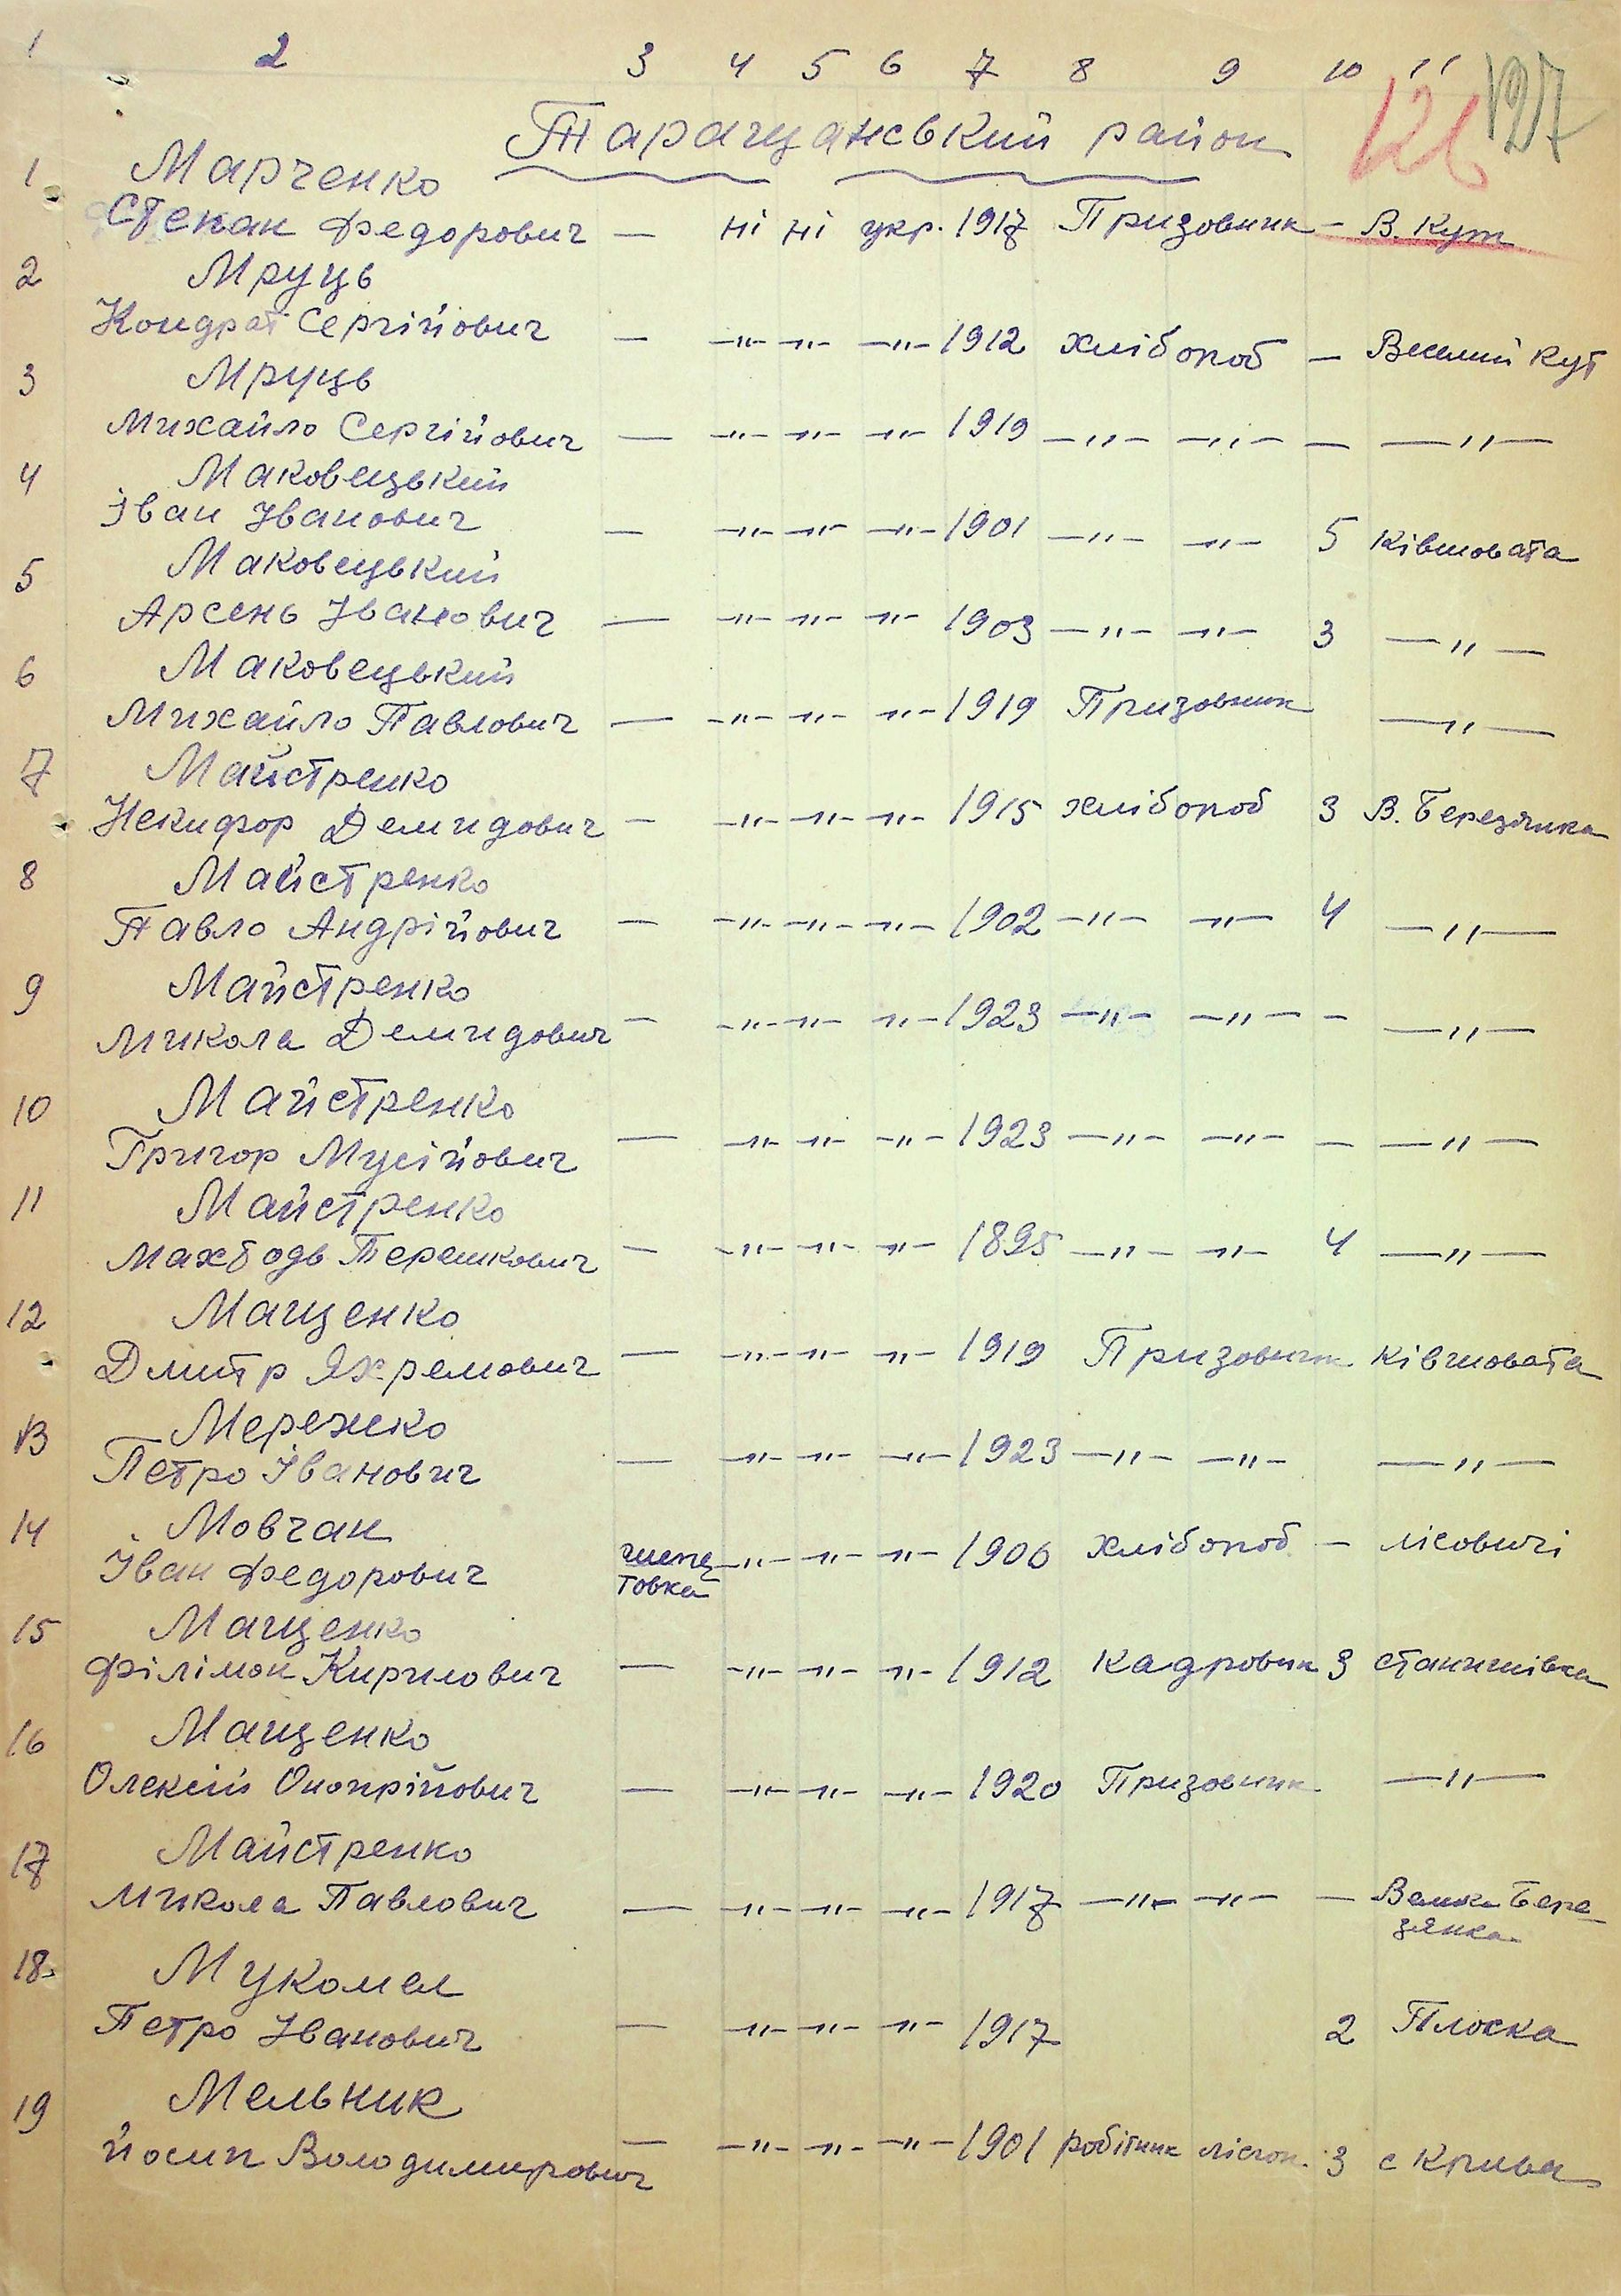 1 2 3 4 5 6 7 8 9 10 11
126 127
Таращанський район
1 Марченко
Степан Федорович — ні ні укр. 1917 Призовник — В. Кут
2 Мруць
Кондрат Сергійович — —"— —"— —"— 1912 хлібороб — Веселий Кут
3 Мруць
Михайло Сергійович — —"— —"— —"— 1919 —"— —"— — —"—
4 Маковецький
Іван Іванович — —"— —"— —"— 1901 —"— —"— 5 Ківшовата
5 Маковецький
Арсень Іванович — —"— —"— —"— 1903 —"— —"— 3 —"—
6 Маковецький
Михайло Павлович — —"— —"— —"— 1919 Призовник —"—
7 Майстренко
Некифор Демидович — —"— —"— —"— 1915 хлібороб 3 В. Березянка
8 Майстренко
Павло Андрійович — —"— —"— —"— 1902 —"— —"— 4 —"—
9 Майстренко
Микола Демидович — —"— —"— —"— 1923 —"— —"— — —"—
10 Майстренко
Григор Мусійович — —"— —"— —"— 1923 —"— —"— — —"—
11 Майстренко
Терешкович — —"— —"— —"— 1895 —"— —"— 4 —"—
12 Мащенко
Дмитр Яхремович — —"— —"— —"— 1919 Призовник Ківшовата
13 Мережко
Петро Іванович — —"— —"— —"— 1923 —"— —"— —"—
14 Мовчан
Іван Федорович —"— —"— —"— 1906 хлібороб — Лісовичі
товка
15 Мащенко
Філімон Кирилович — —"— —"— —"— 1912 кадровик 3 Станишівка
16 Мащенко
Олексій Онопрійович — —"— —"— —"— 1920 Призовник —"—
17 Майстренко
Микола Павлович — —"— —"— —"— 1917 —"— —"— — Велика Бере-
зянка
18 Мукомел
Петро Іванович — —"— —"— —"— 1917 2 Плоска
19 Мельник
Йосип Володимирович — —"— —"— —"— 1901 робітник лісгоп. 3 с Крива